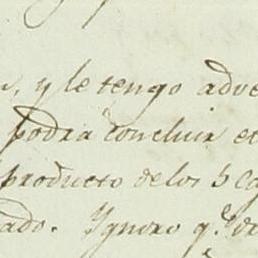 , y le tengo adve
podrá concluir e
producto de los 5 ca
ado. Ygnoro q.e